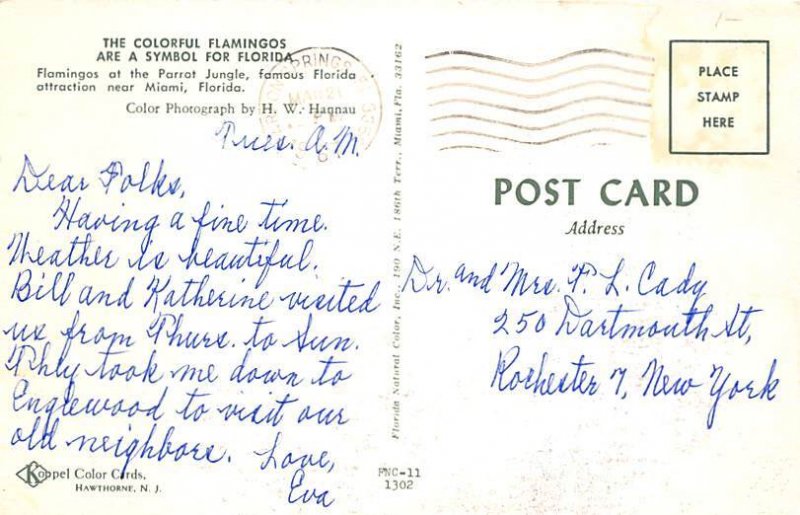 THE COLORFUL FLAMINGOS
ARE A SYMBOL FOR FLORIDA
Flamingos at the Parrot Jungle, famous Florida
attraction near Miami, Florida.
Color Photograph by H. W. Hannau
Tues. A.M.
Dear Folks,
Having a fine time.
Weather is beautiful.
Bill and Katherine visited
us from Thurs. to Sun.
They took me down to
Englewood to visit our
old neighbors. Love,
Eva
Koppel Color Cards,
HAWTHORNE, N. J.
FNC-11
1302
Florida Natural Color, Inc., 190 N.E. 186th Terr., Miami, Fla. 33162
SPRINGS
MAR 21
PLACE
STAMP
HERE
POST CARD
Address
Dr. and Mrs. F. L. Cady
250 Dartmouth St,
Rochester 7, New York